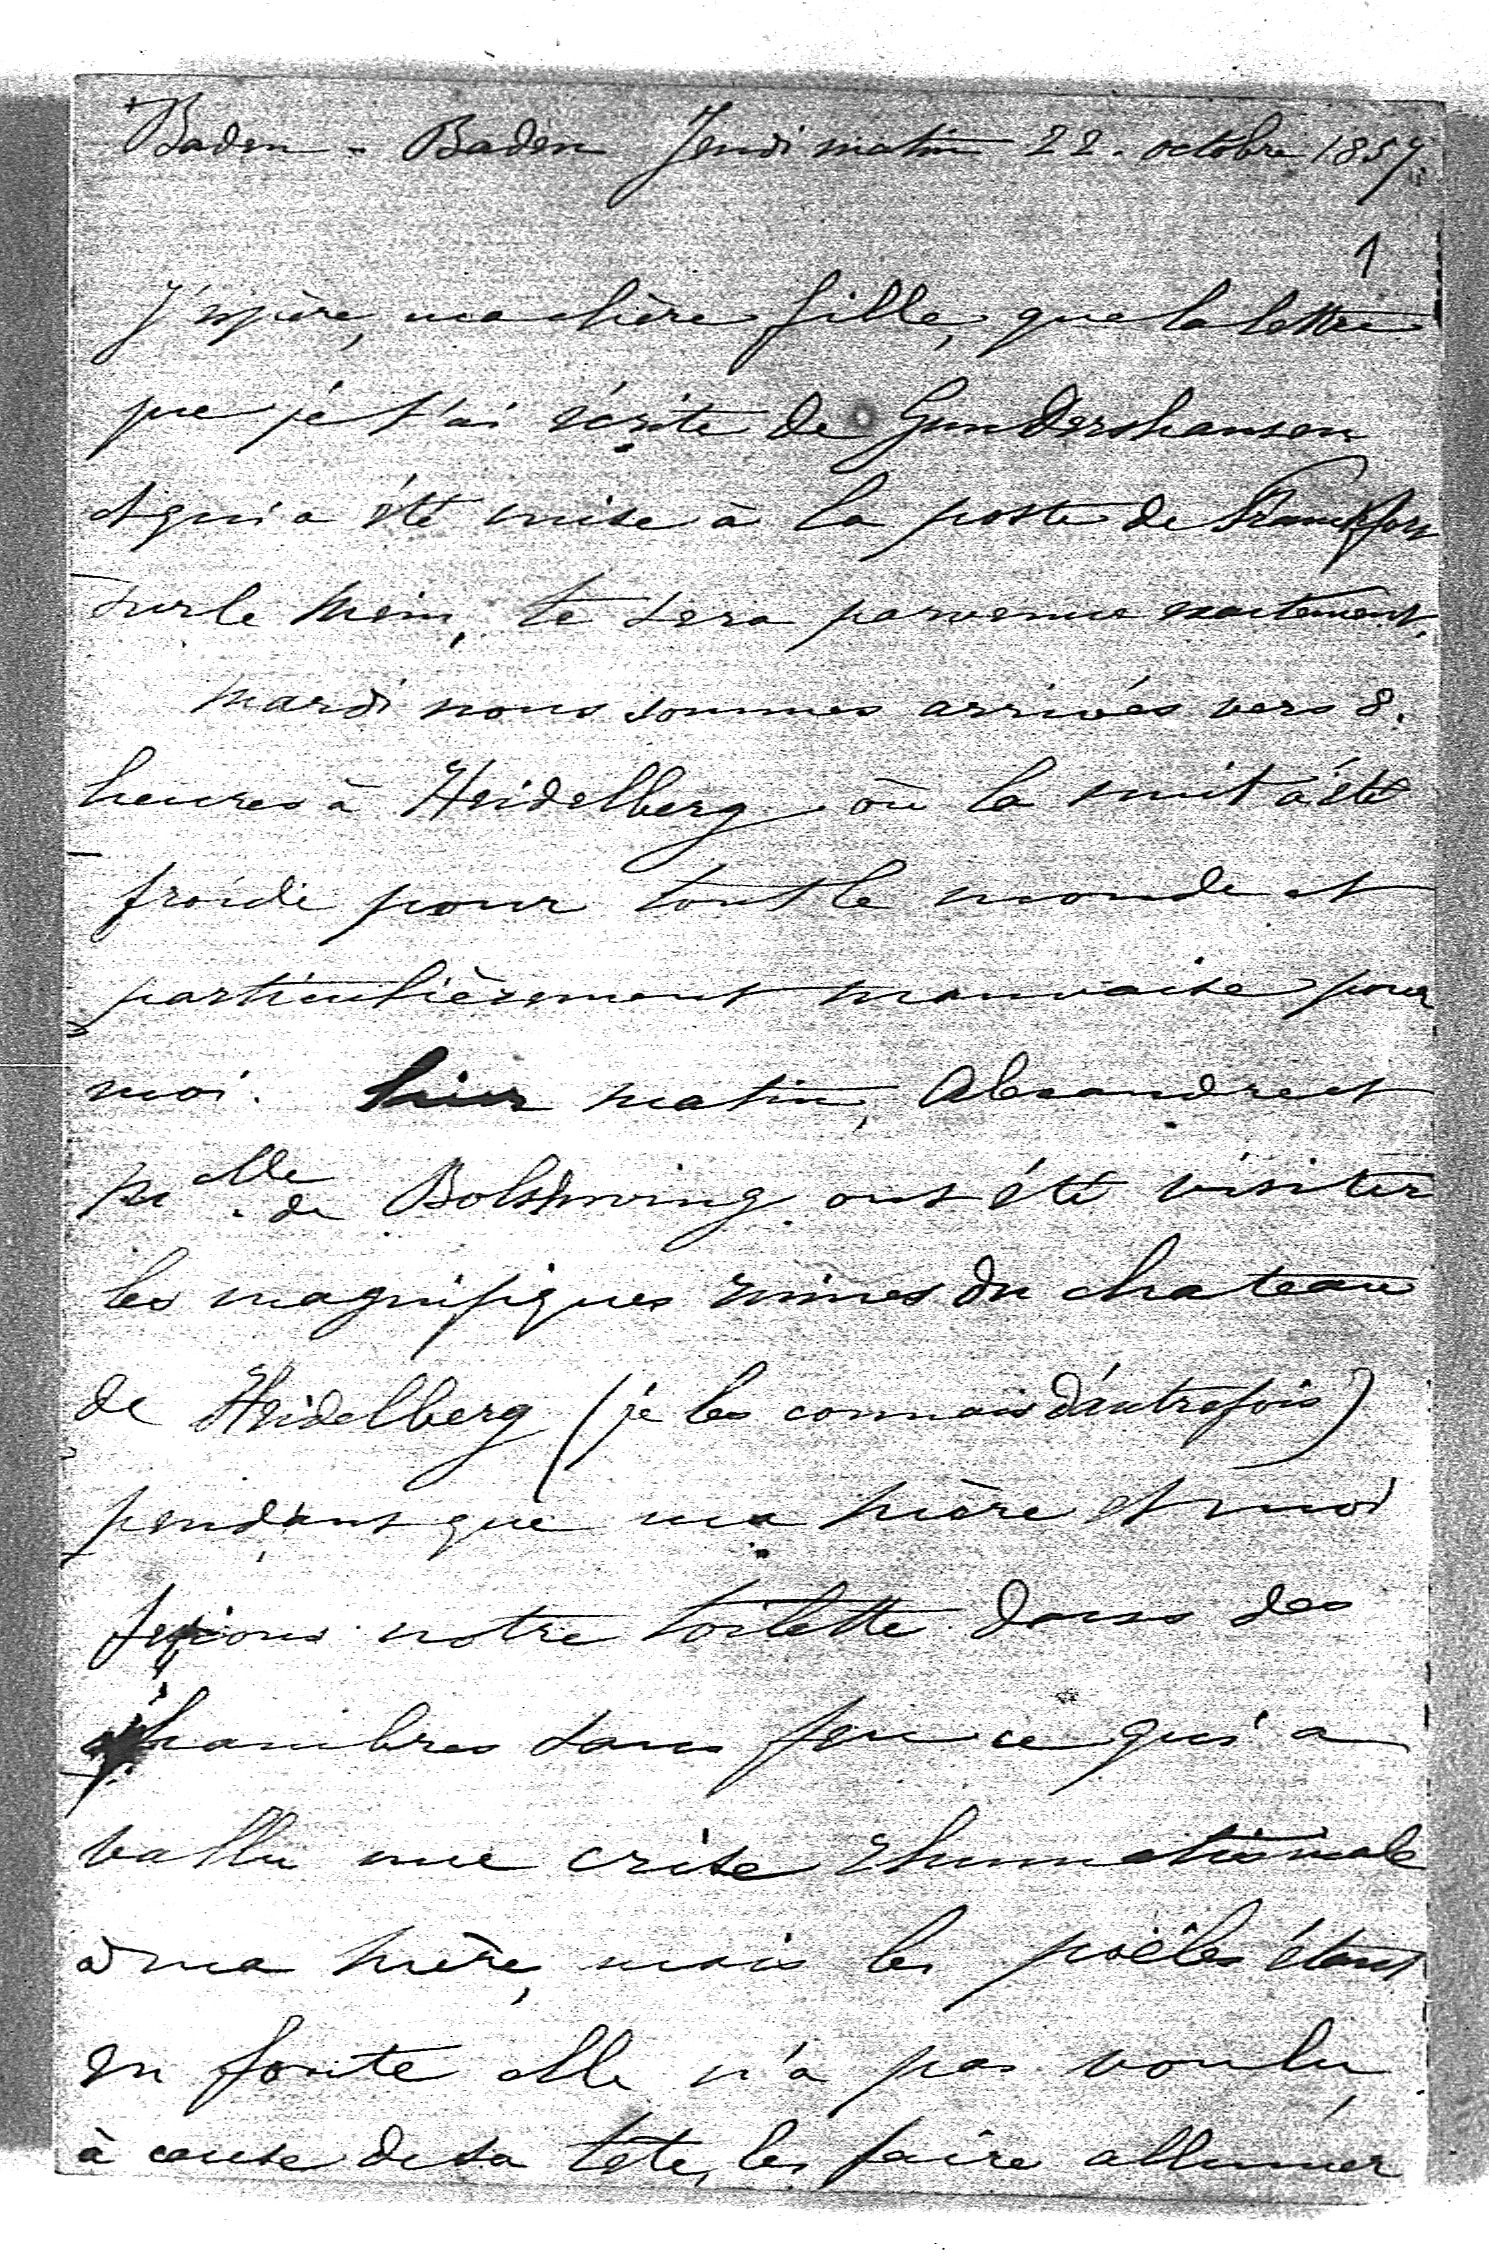 Baden-Baden Jeudi matin 22. octobre 1857.
1
J'espère, ma chère fille, que la lettre
que je t'ai écrite de Gundershausen
et qui a été mise à la poste de Francfort
sur le Mein, te sera parvenue exactement.
Mardi nous sommes arrivés vers 8.
heures à Heidelberg où la nuit a été
froide pour tout le monde et
particulièrement mauvaise pour
moi. hier matin, Alexandre et
Melle de Bolshwing ont été visiter
les magnifiques ruines du chateau
de Heidelberg (je les connais d'autrefois)
pendant que ma mère et moi
fesions notre toilette dans des
chambres sans feu ce qui a
vallu une crise rhumatismale
à ma mère, mais les poëles étant
en fonte elle n'a pas voulu,
à cause de sa tete, les faire allumer